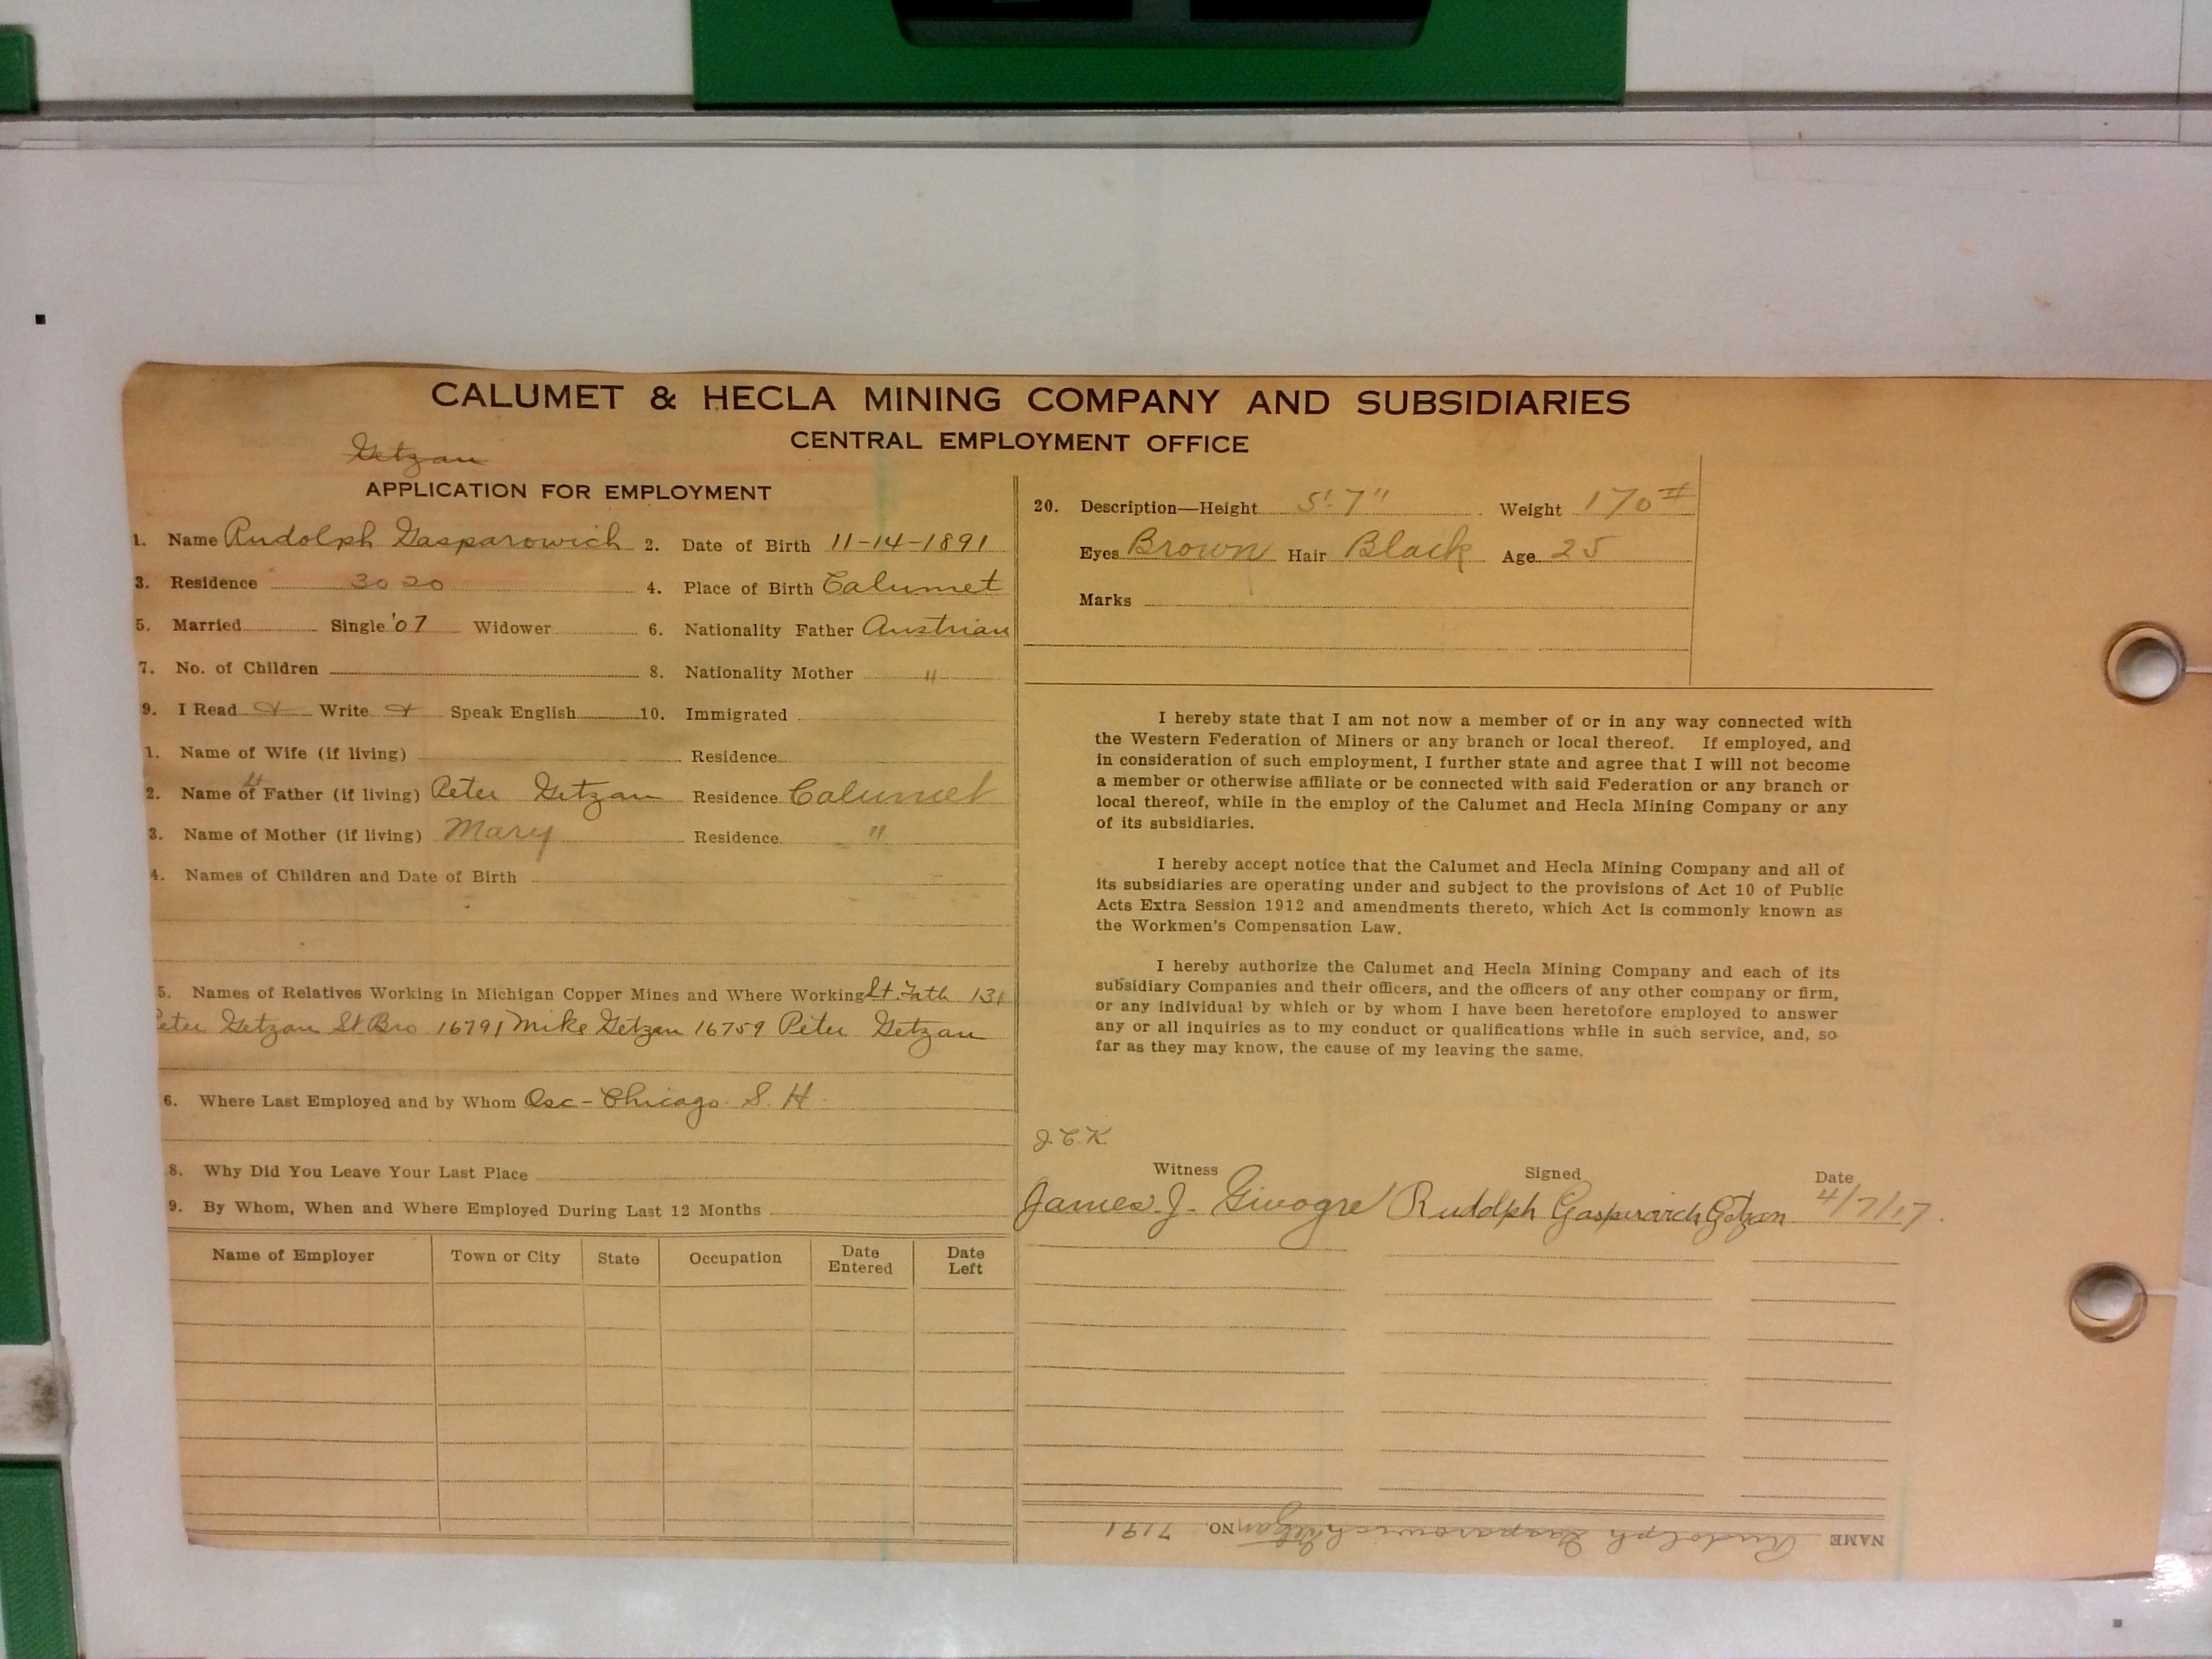 CALUMET & HECLA MINING COMPANY AND SUBSIDIARIES
CENTRAL EMPLOYMENT OFFICE
Getzan
APPLICATION FOR EMPLOYMENT
1. Name Rudolph Gasparowich 2. Date of Birth 11-14-1891
3. Residence 3020 4. Place of Birth Calumet
5. Married Single '07 Widower 6. Nationality Father Austrian
7. No. of Children 8. Nationality Mother "
9. I Read Write Speak English 10. Immigrated
1. Name of Wife (if living) Residence
2. Name of St Father (if living) Peter Getzan Residence Calumet
3. Name of Mother (if living) Mary Residence "
4. Names of Children and Date of Birth
5. Names of Relatives Working in Michigan Copper Mines and Where Working St. Fath 131
eter Getzan St Bro 16791 Mike Getzan 16759 Peter Getzan
6. Where Last Employed and by Whom Osc - Chicago S. H
8. Why Did You Leave Your Last Place
9. By Whom, When and Where Employed During Last 12 Months
Name of Employer Town or City State Occupation Date Entered Date Left
20. Description—Height 5' 7" Weight 170#
Eyes Brown Hair Black Age 25
Marks
I hereby state that I am not now a member of or in any way connected with
the Western Federation of Miners or any branch or local thereof. If employed, and
in consideration of such employment, I further state and agree that I will not become
a member or otherwise affiliate or be connected with said Federation or any branch or
local thereof, while in the employ of the Calumet and Hecla Mining Company or any
of its subsidiaries.
I hereby accept notice that the Calumet and Hecla Mining Company and all of
its subsidiaries are operating under and subject to the provisions of Act 10 of Public
Acts Extra Session 1912 and amendments thereto, which Act is commonly known as
the Workmen's Compensation Law.
I hereby authorize the Calumet and Hecla Mining Company and each of its
subsidiary Companies and their officers, and the officers of any other company or firm,
or any individual by which or by whom I have been heretofore employed to answer
any or all inquiries as to my conduct or qualifications while in such service, and, so
far as they may know, the cause of my leaving the same.
J.C.K.
Witness Signed Date
James J. Givogre Rudolph Gasperaich Getzan 4/7/17
NAME Rudolph Gasparowich Getzan NO. 7191